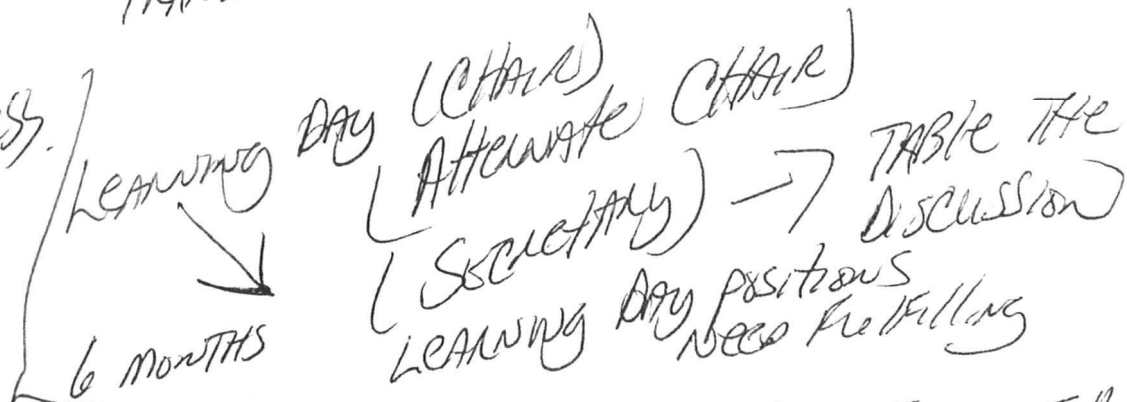 Learning Day (Chair)
(Alternate Chair)
(Secretary) → Table the
Discussion
6 Months
Learning Day positions
Need Fulfilling